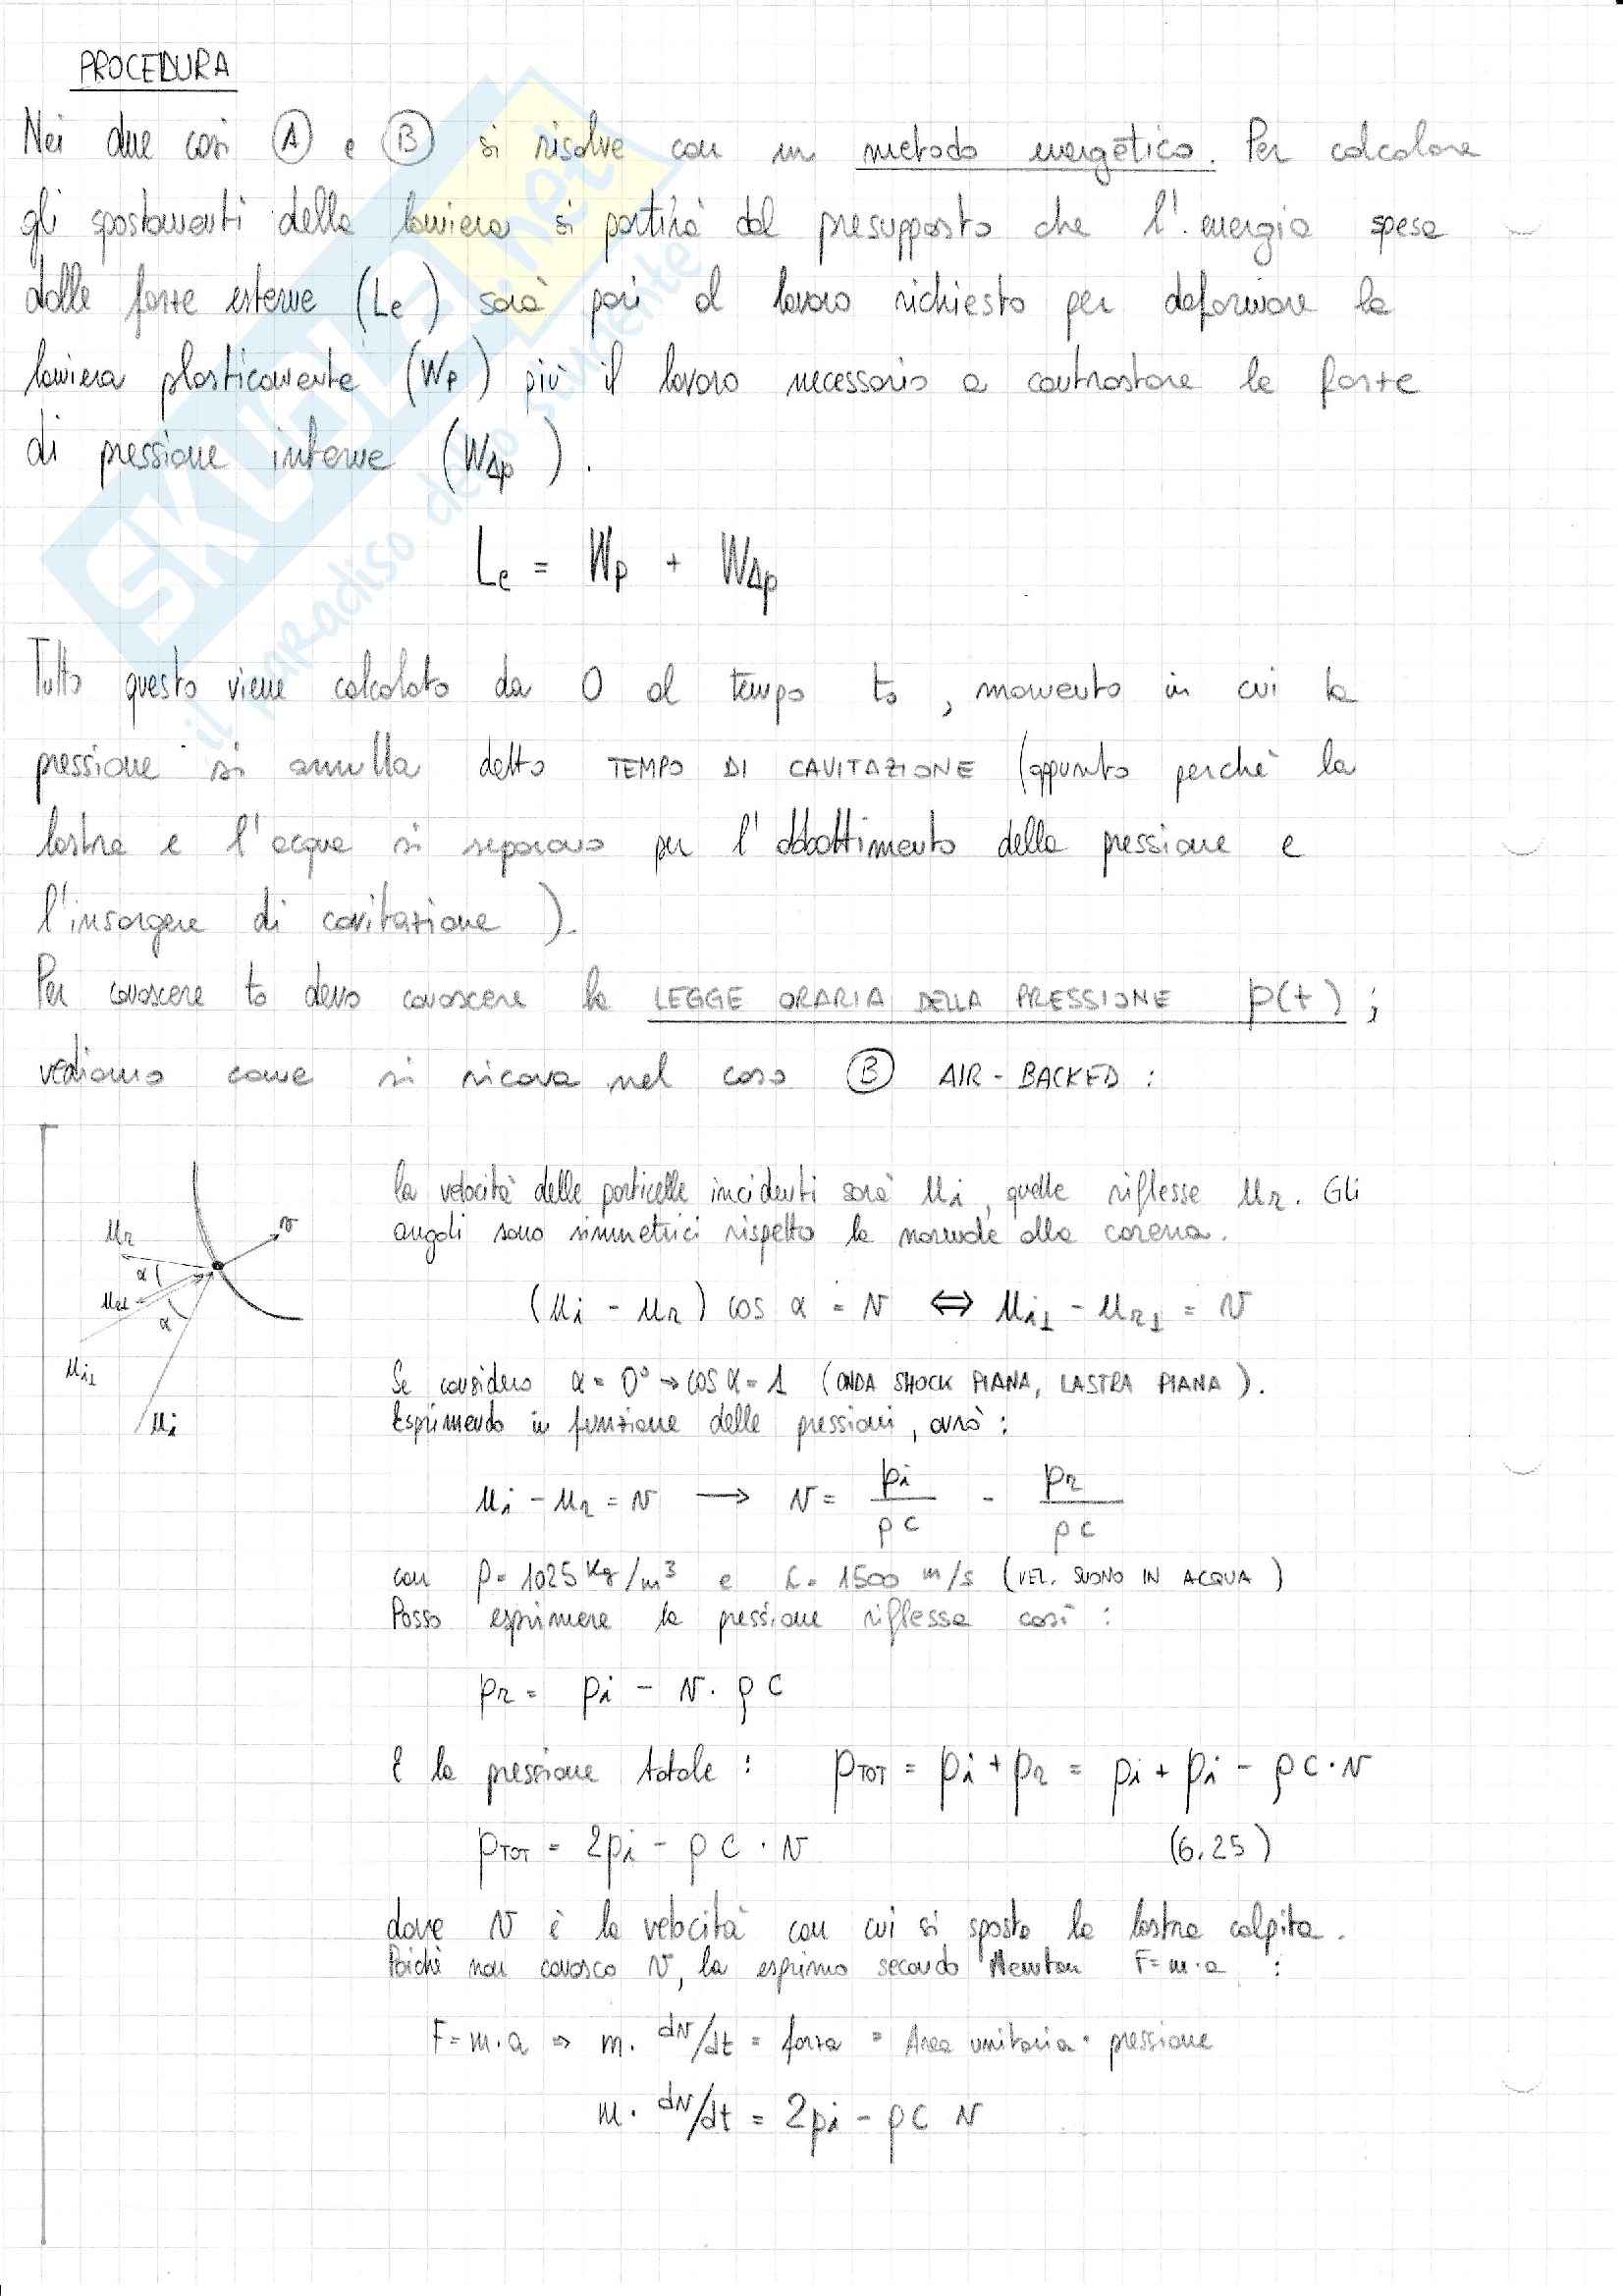 PROCEDURA
Nei due casi Ⓐ e Ⓑ si risolve con un metodo energetico. Per calcolare
gli spostamenti della lamiera si partirà dal presupposto che l'energia spesa
dalle forze esterne (Le) sarà pari al lavoro richiesto per deformare la
lamiera plasticamente (Wp) più il lavoro necessario a contrastare le forze
di pressione interne (WΔp).
Le = Wp + WΔp
Tutto questo viene calcolato da 0 al tempo to, momento in cui la
pressione si annulla detto TEMPO DI CAVITAZIONE (appunto perchè la
lastra e l'acqua si separano per l'abbattimento della pressione e
l'insorgere di cavitazione).
Per conoscere to devo conoscere la LEGGE ORARIA DELLA PRESSIONE p(t);
vediamo come si ricava nel caso Ⓑ AIR-BACKED:
la velocità delle particelle incidenti sarà ui, quelle riflesse ur. Gli
angoli sono simmetrici rispetto la normale alla carena.
ur
v
α
ur⊥
α
ui⊥
ui
(ui - ur) cos α = v ⇔ ui⊥ - ur⊥ = v
Se considero α = 0° → cos α = 1 (ONDA SHOCK PIANA, LASTRA PIANA).
Esprimendo in funzione delle pressioni, avrò:
ui - ur = v → v = pi/ρc - pr/ρc
con ρ = 1025 Kg/m³ e c = 1500 m/s (VEL. SUONO IN ACQUA)
Posso esprimere la pressione riflessa così:
pr = pi - v · ρc
E la pressione totale: pTOT = pi + pr = pi + pi - ρc · v
pTOT = 2pi - ρc · v (6.25)
dove v è la velocità con cui si sposta la lastra colpita.
Poichè non conosco v, la esprimo secondo Newton F=m·a :
F=m·a ⇒ m · dv/dt = forza = Area unitaria · pressione
m · dv/dt = 2pi - ρc v
SKUOLA.net
il paradiso dello studente